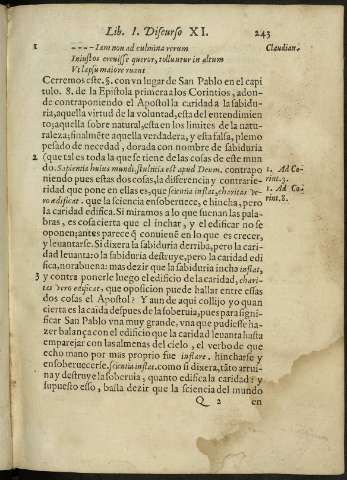 Lib. I. Discurso XI. 243
1 ----Iam non ad culmina rerum Claudian.
Iniustos crevisse queror, tolluntur in altum
Vt lapsu maiore ruant
Cerremos este. §. con vn lugar de San Pablo en el capi
tulo. 8. de la Epistola primera a los Corintios, adon-
de contraponiendo el Apostol la caridad a la sabidu-
ria, aquella virtud de la voluntad, esta del entendimien
to; aquella sobre natural, esta en los limites de la natu-
raleza; finalmẽte aquella verdadera, y esta falsa, plomo
pesado de necedad, dorada con nombre de sabiduria
2 (que tal es toda la que se tiene de las cosas de este mun
do. Sapientia huius mundi, stultitia est apud Deum. contrapo 1. Ad Co-
niendo pues estas dos cosas, la differencia y contrarie- rint. 3.
ridad que pone en ellas es, que scientia inflat, charitas ve- 1. Ad Co-
rò ædificat. que la sciencia ensoberuece, e hincha, pero rint. 8.
la caridad edifica. Si miramos a lo que suenan las pala-
bras, es cosa cierta que el inchar, y el edificar no se
oponen; antes parece q̃ conuienẽ en lo que es crecer,
y leuantarse. Si dixera la sabiduria derriba, pero la cari-
dad leuanta: o la sabiduria destruye, pero la caridad edi
fica, norabuena: mas dezir que la sabiduria incha inflat,
3 y contra ponerle luego el edificio de la caridad, chari-
tas verò edificat, que oposicion puede hallar entre essas
dos cosas el Apostol? Y aun de aqui collijo yo quan
cierta es la caida despues de la soberuia, pues para signi-
ficar San Pablo vna muy grande, vna que pudiesse ha-
zer balança con el edificio que la caridad leuanta hasta
emparejar con las almenas del cielo, el verbo de que
echo mano por mas proprio fue inflare, hincharse y
ensoberuecerse. scientia inflat. como si dixera, tãto arrui-
na y destruye la soberuia, quanto edifica la caridad: y
supuesto esso, basta dezir que la sciencia del mundo
Q 2 en